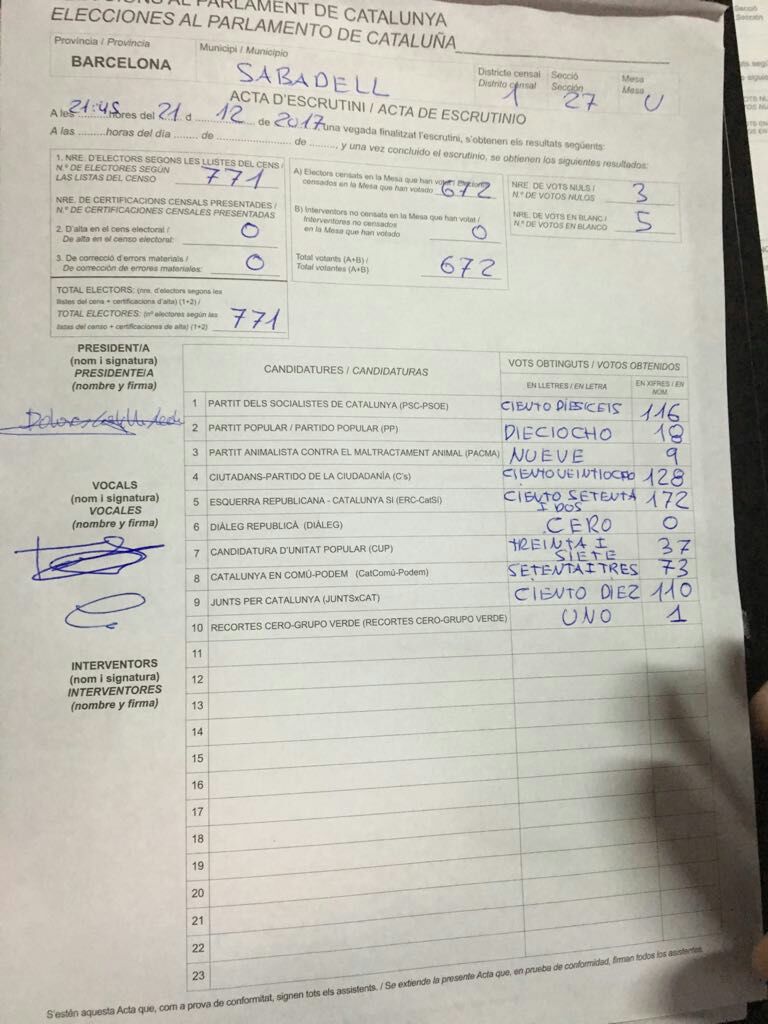 ELECCIONS AL PARLAMENT DE CATALUNYA
ELECCIONES AL PARLAMENTO DE CATALUÑA
Provincia / Provincia
BARCELONA
Municipi / Municipio
SABADELL
Districte censal
Distrito censal
1
Secció
Sección
27
Mesa
Mesa
U
ACTA D'ESCRUTINI / ACTA DE ESCRUTINIO
A les 21:45 hores del 21 d 12 de 2017 una vegada finalitzat l'escrutini, s'obtenen els resultats següents:
A las .........horas del día ........ de ........................ de ........., y una vez concluido el escrutinio, se obtienen los siguientes resultados:
1. NRE. D'ELECTORS SEGONS LES LLISTES DEL CENS /
N.º DE ELECTORES SEGÚN
LAS LISTAS DEL CENSO
771
NRE. DE CERTIFICACIONS CENSALS PRESENTADES /
N.º DE CERTIFICACIONES CENSALES PRESENTADAS
2. D'alta en el cens electoral /
De alta en el censo electoral:
0
3. De correcció d'errors materials /
De corrección de errores materiales:
0
TOTAL ELECTORS: (nre. d'electors segons les
llistes del cens + certificacions d'alta) (1+2) /
TOTAL ELECTORES: (nº electores según las
listas del censo + certificaciones de alta) (1+2)
771
A) Electors censats en la Mesa que han votat /
censados en la Mesa que han votado
672
B) Interventors no censats en la Mesa que han votat /
Interventores no censados
en la Mesa que han votado
0
Total votants (A+B) /
Total votantes (A+B)
672
NRE. DE VOTS NULS /
N.º DE VOTOS NULOS
3
NRE. DE VOTS EN BLANC /
N.º DE VOTOS EN BLANCO
5
PRESIDENT/A
(nom i signatura)
PRESIDENTE/A
(nombre y firma)
VOCALS
(nom i signatura)
VOCALES
(nombre y firma)
INTERVENTORS
(nom i signatura)
INTERVENTORES
(nombre y firma)
CANDIDATURES / CANDIDATURAS
VOTS OBTINGUTS / VOTOS OBTENIDOS
EN LLETRES / EN LETRA
EN XIFRES / EN NÚM.
1 PARTIT DELS SOCIALISTES DE CATALUNYA (PSC-PSOE) CIENTO DIESICEIS 116
2 PARTIT POPULAR / PARTIDO POPULAR (PP) DIECIOCHO 18
3 PARTIT ANIMALISTA CONTRA EL MALTRACTAMENT ANIMAL (PACMA) NUEVE 9
4 CIUTADANS-PARTIDO DE LA CIUDADANÍA (C's) CIENTOVEINTIOCHO 128
5 ESQUERRA REPUBLICANA - CATALUNYA SI (ERC-CatSí) CIENTO SETENTA I DOS 172
6 DIÀLEG REPUBLICÀ (DIÀLEG) CERO 0
7 CANDIDATURA D'UNITAT POPULAR (CUP) TREINTA I SIETE 37
8 CATALUNYA EN COMÚ-PODEM (CatComú-Podem) SETENTAITRES 73
9 JUNTS PER CATALUNYA (JUNTSxCAT) CIENTO DIEZ 110
10 RECORTES CERO-GRUPO VERDE (RECORTES CERO-GRUPO VERDE) UNO 1
11
12
13
14
15
16
17
18
19
20
21
22
23
S'estén aquesta Acta que, com a prova de conformitat, signen tots els assistents. / Se extiende la presente Acta que, en prueba de conformidad, firman todos los asistentes.
Secció
Sección